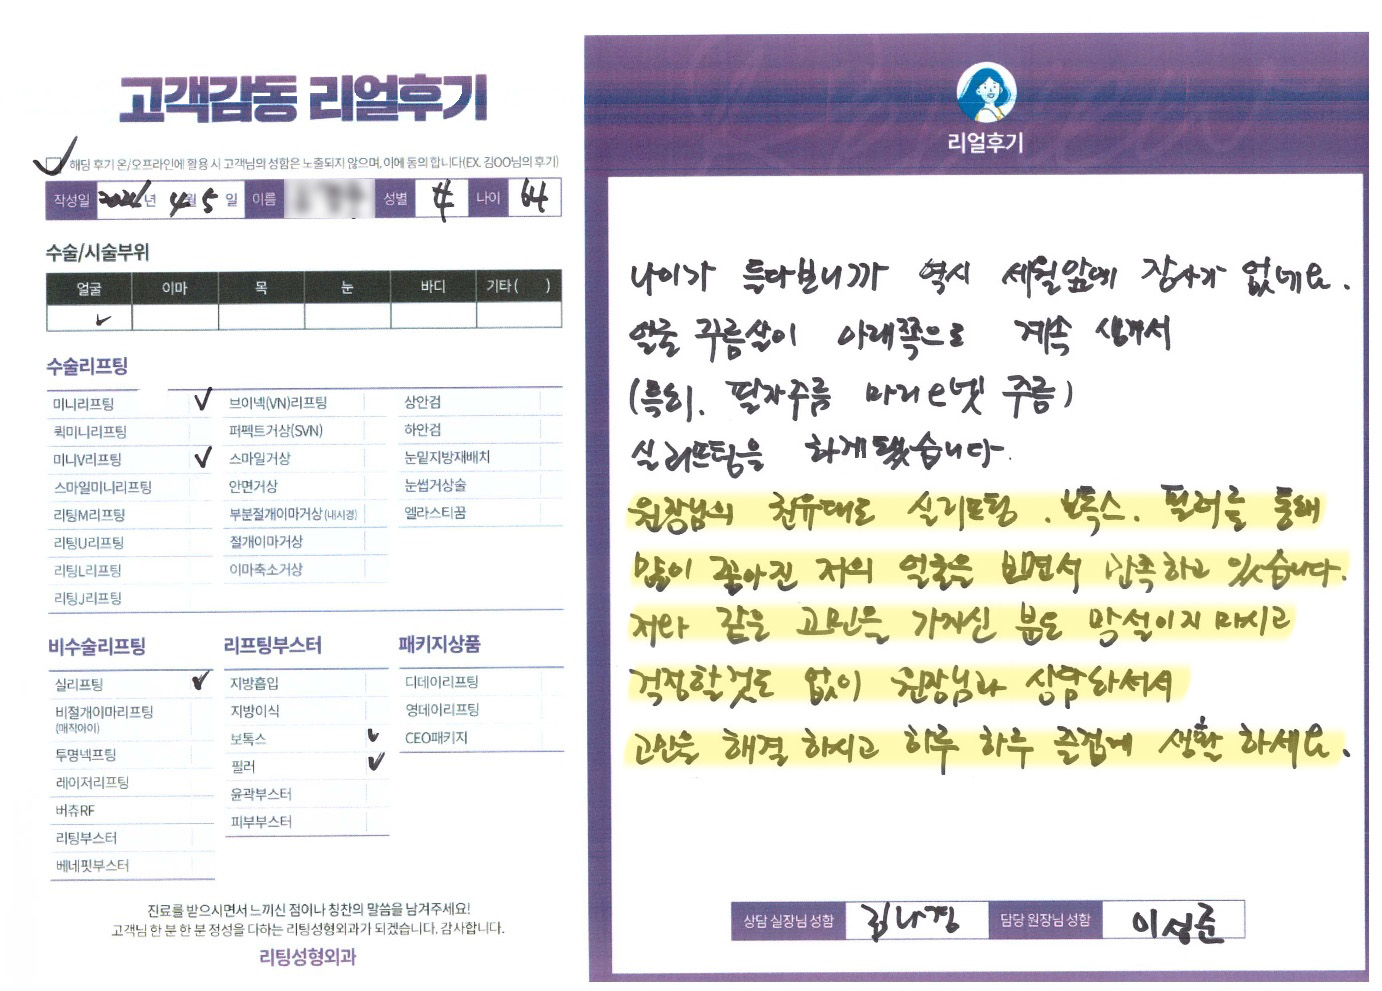 고객감동 리얼후기
해당 후기 온/오프라인에 활용 시 고객님의 성함은 노출되지 않으며, 이에 동의 합니다(EX. 김OO님의 후기)
작성일 년 4월 5일 이름 성별 나이 64
수술/시술부위
얼굴 이마 목 눈 바디 기타 ( )
수술리프팅
미니리프팅
퀵미니리프팅
미니V리프팅
스마일미니리프팅
리팅M리프팅
리팅U리프팅
리팅L리프팅
리팅J리프팅
브이넥(VN)리프팅
퍼펙트거상(SVN)
스마일거상
안면거상
부분절개이마거상 (내시경)
절개이마거상
이마축소거상
상안검
하안검
눈밑지방재배치
눈썹거상술
엘라스티꿈
비수술리프팅
실리프팅
비절개이마리프팅
(매직아이)
투명넥프팅
레이저리프팅
버츄RF
리팅부스터
베네핏부스터
리프팅부스터
지방흡입
지방이식
보톡스
필러
윤곽부스터
피부부스터
패키지상품
디데이리프팅
영데이리프팅
CEO패키지
진료를 받으시면서 느끼신 점이나 칭찬의 말씀을 남겨주세요!
고객님 한 분 한 분 정성을 다하는 리팅성형외과가 되겠습니다. 감사합니다.
리팅성형외과
리얼후기
나이가 들다보니까 역시 세월앞에 장사가 없네요.
얼굴 주름살이 아래쪽으로 계속 생겨서
(특히, 팔자주름 마리오넷 주름)
실리프팅을 하게됐습니다.
원장님의 권유대로 실리프팅, 보톡스, 필러를 통해
많이 좋아진 저의 얼굴을 보면서 만족하고 있습니다.
저와 같은 고민을 가지신 분도 망설이지 마시고
걱정할것도 없이 원장님과 상담하셔서
고민을 해결 하시고 하루 하루 즐겁게 생활 하세요.
상담 실장님 성함 김나경 담당 원장님 성함 이성준